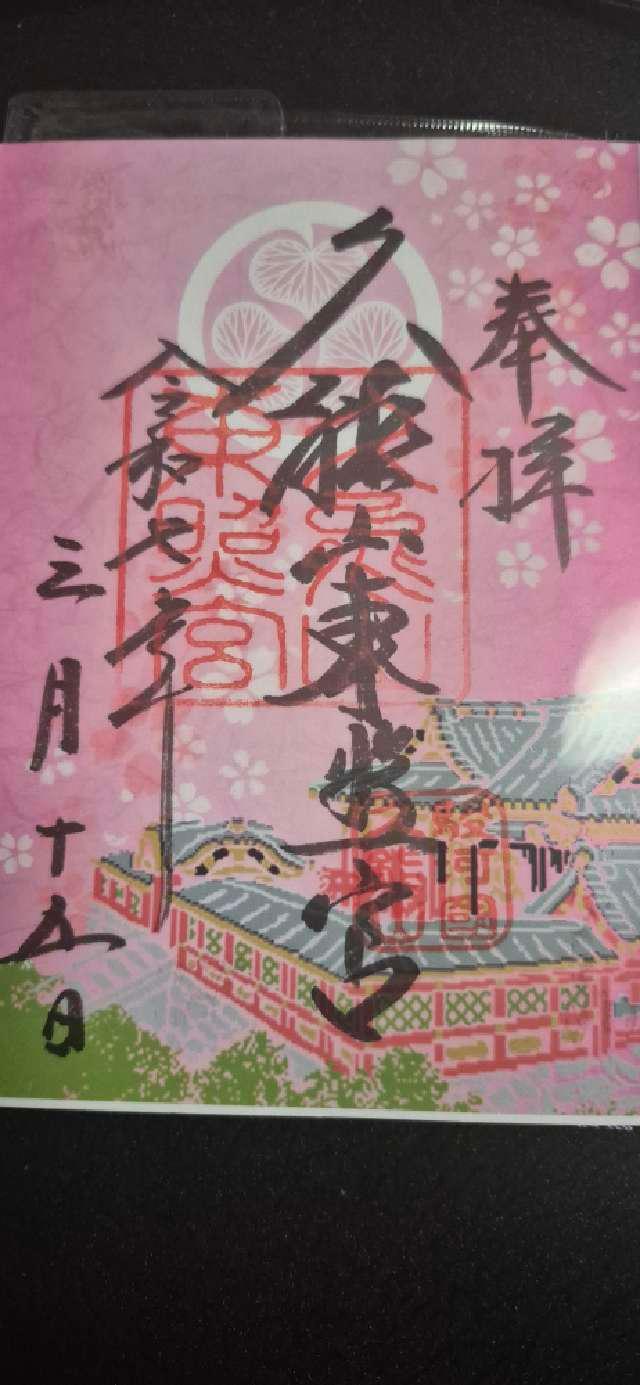 奉拝
久能山東照宮
令和七年
三月十五日
東照宮
駿河國